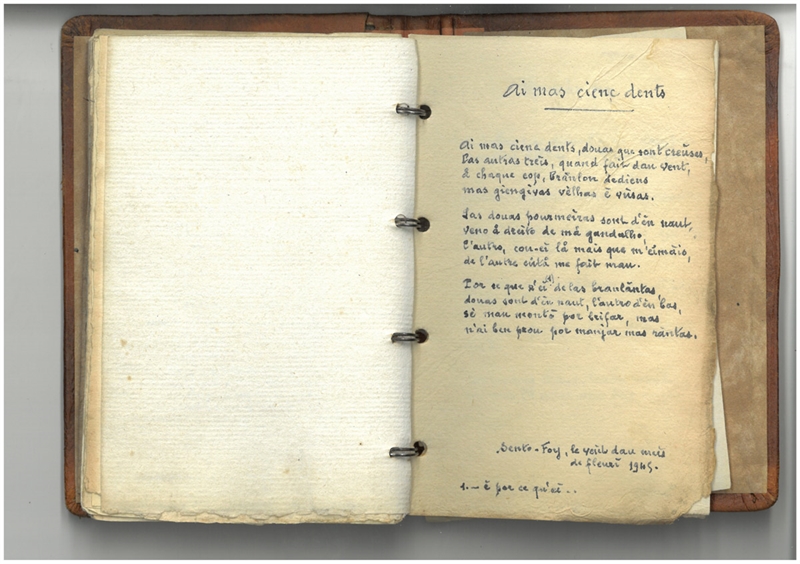 Ai mas cienc dents
Ai mas cienc dents, douas que sont creuses,
Las autras treis, quand fait dau vent,
A chaque cop, brànlon dediens
mas giengivas vèlhas e vusas.
Las douas pourmeiras sont d'en naut,
veno a dreito de ma gandalho,
l'autro, cou-ei la mais que m'eimais,
de l'autre cuta me fait mau.
Por ce que n'ei (1) de las branlantas
douas sont d'en naut, l'autro d'en bas,
se mau monto por brifar, mas
n'ai ben prou por manjar mas rantas.
Sento-Foy, le veut dau meis
de fleuri 1945.
1.- e por ce qu'ei..